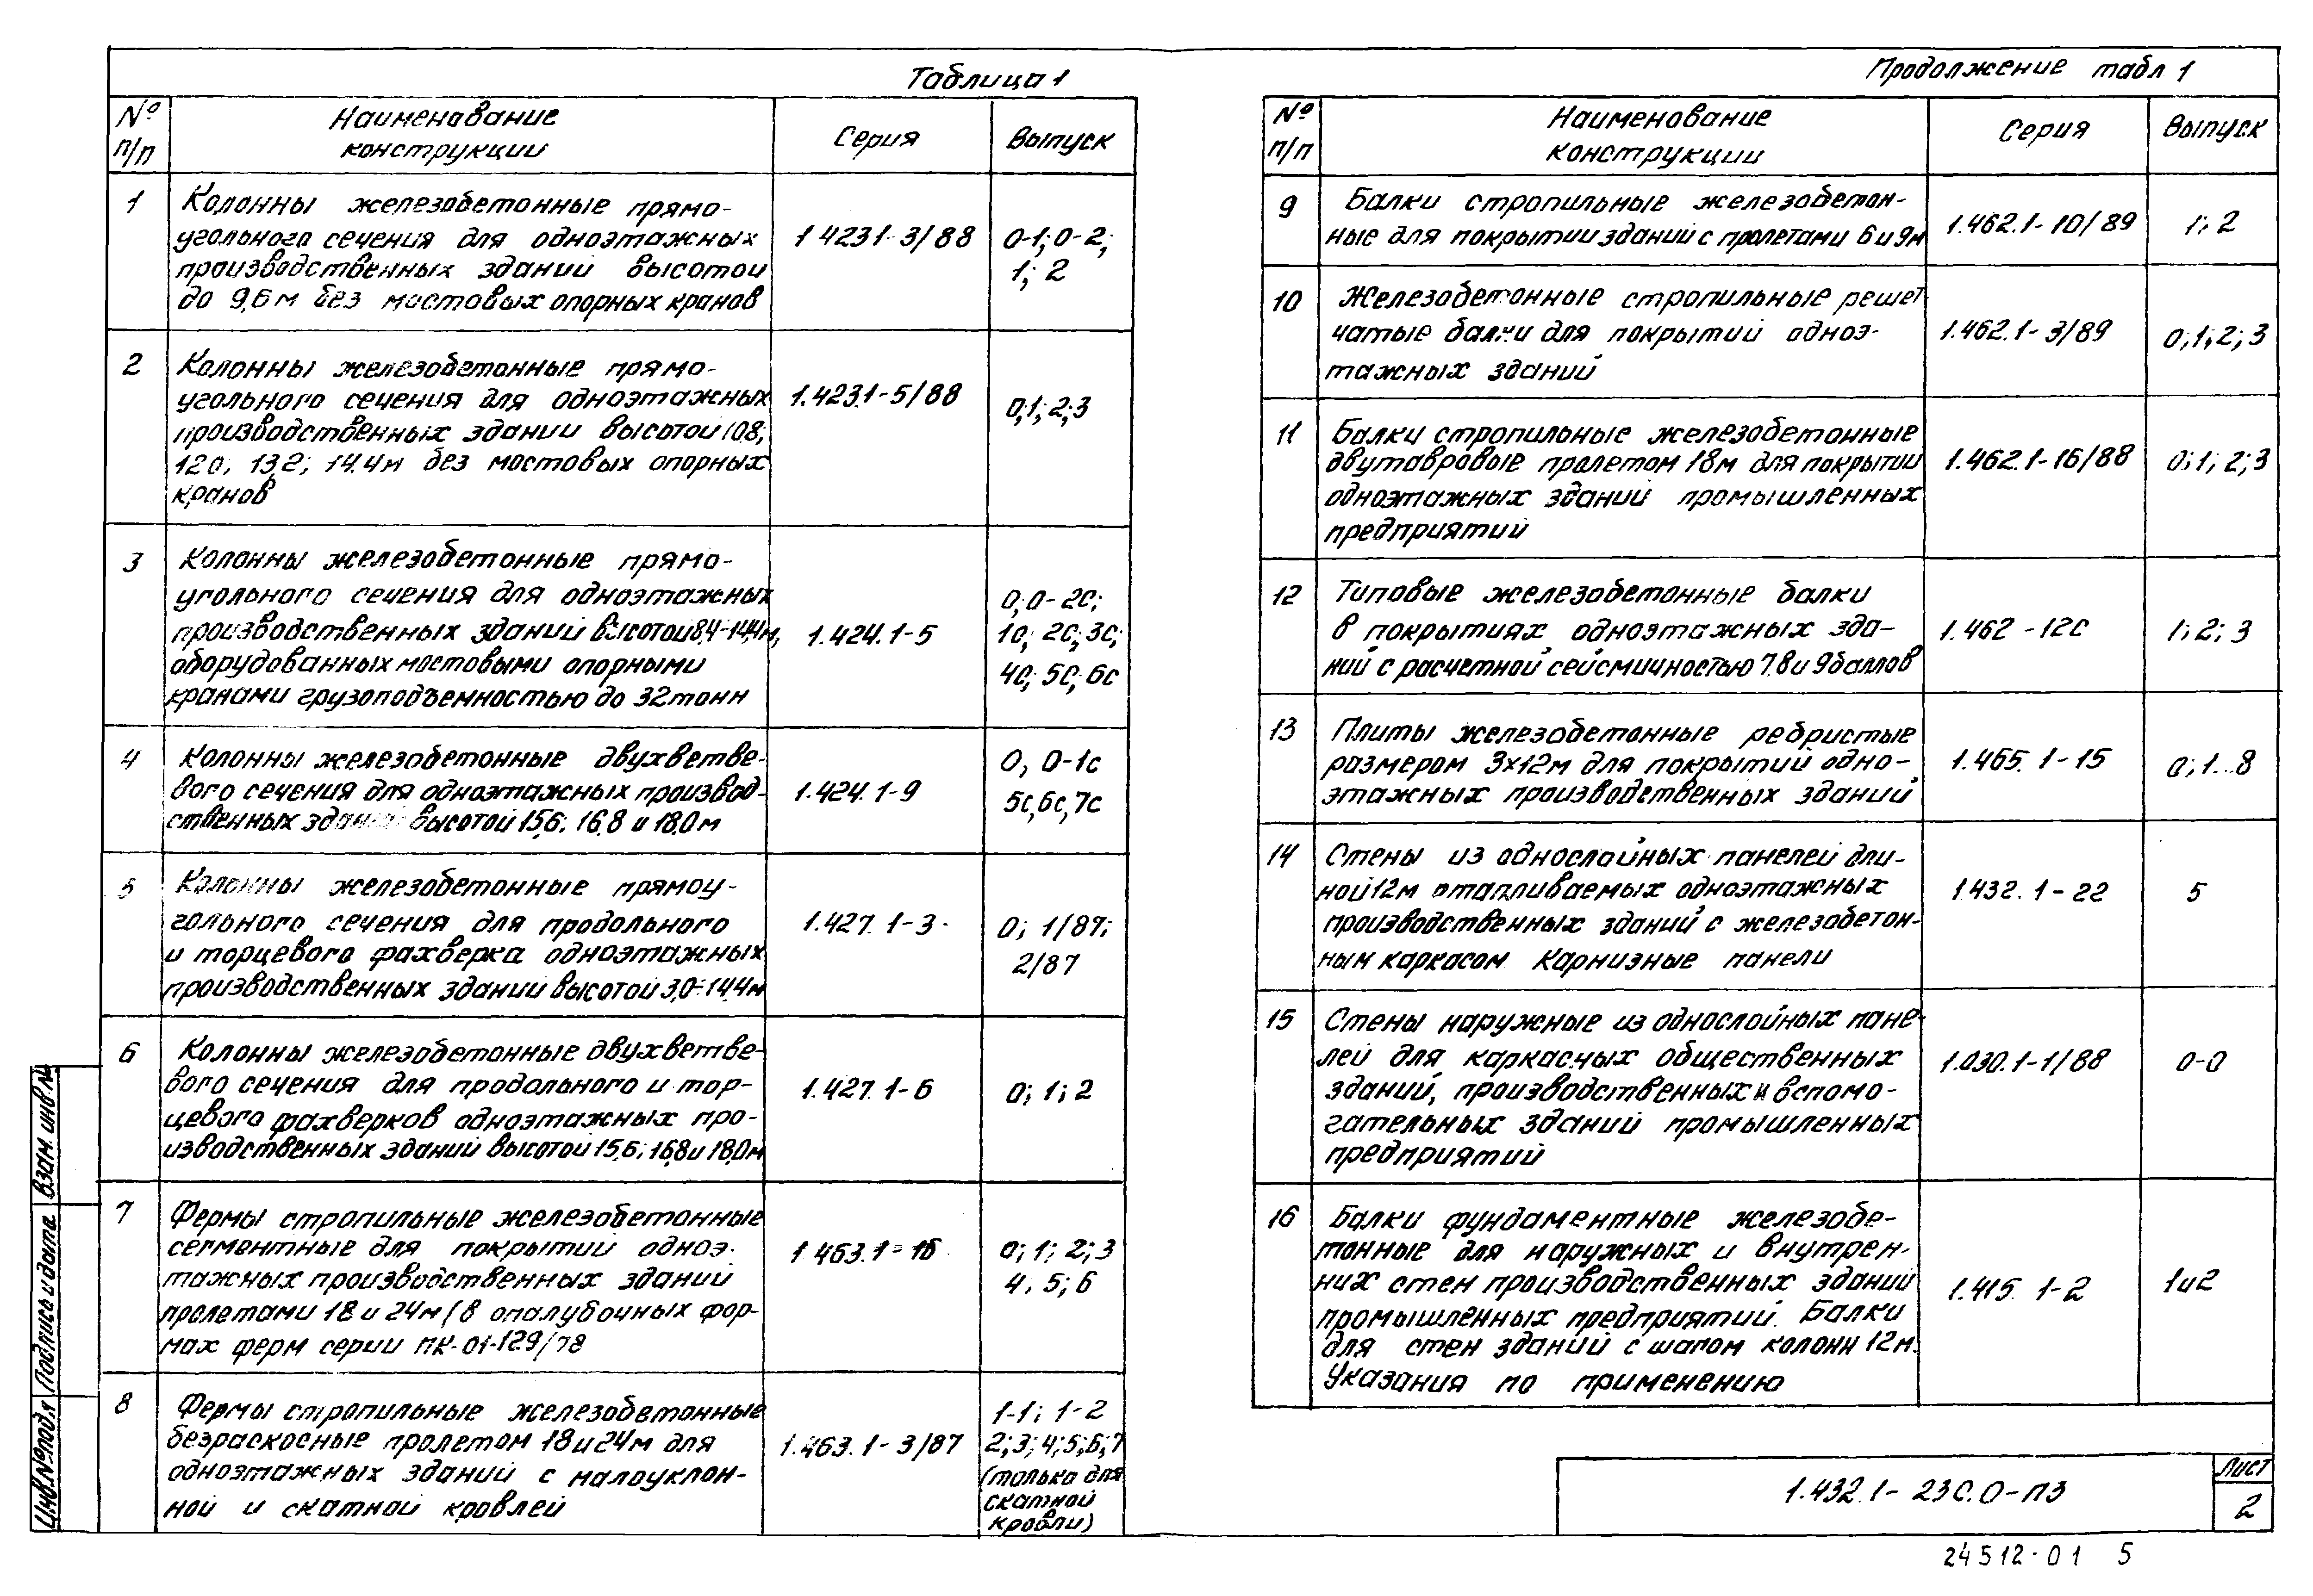 Таблица 1
№ п/п
Наименование
конструкции
Серия
Выпуск
1
Колонны железобетонные прямо-
угольного сечения для одноэтажных
производственных зданий высотой
до 9,6 м без мостовых опорных кранов
1.423.1-3/88
0-1; 0-2;
1; 2
2
Колонны железобетонные прямо-
угольного сечения для одноэтажных
производственных зданий высотой 10,8;
12,0; 13,2; 14.4м без мостовых опорных
кранов
1.423.1-5/88
0;1;2;3
3
Колонны железобетонные прямо-
угольного сечения для одноэтажных
производственных зданий высотой 8,4-14,4м,
оборудованных мостовыми опорными
кранами грузоподъемностью до 32 тонн
1.424.1-5
0;0-2с;
1с; 2с; 3с;
4с; 5с; 6с
4
Колонны железобетонные двухветве-
вого сечения для одноэтажных производ-
ственных зданий высотой 15,6; 16,8 и 18,0 м
1.424.1-9
0, 0-1с
5с,6с,7с
5
Колонны железобетонные прямоу-
гольного сечения для продольного
и торцевого фахверка одноэтажных
производственных зданий высотой 3,0÷14,4м
1.427.1-3
0; 1/87;
2/87
6
Колонны железобетонные двухветве-
вого сечения для продольного и тор-
цевого фахверков одноэтажных про-
изводственных зданий высотой 15,6; 16,8 и 18,0м
1.427.1-6
0; 1; 2
7
Фермы стропильные железобетонные
сегментные для покрытий одноэ-
тажных производственных зданий
пролетами 18 и 24м (в опалубочных фор-
мах ферм серии ПК-01-129/78
1.463.1-16
0; 1; 2; 3
4, 5; 6
8
Фермы стропильные железобетонные
безраскосные пролетом 18 и 24м для
одноэтажных зданий с малоуклон-
ной и скатной кровлей
1.463.1-3/87
1-1; 1-2
2;3;4;5;6;7
(только для
скатной
кровли)
Продолжение табл 1
№ п/п
Наименование
конструкции
Серия
Выпуск
9
Балки стропильные железобетон-
ные для покрытий зданий с пролетами 6 и 9м
1.462.1-10/89
1; 2
10
Железобетонные стропильные решет
чатые балки для покрытий одноэ-
тажных зданий
1.462.1-3/89
0;1;2;3
11
Балки стропильные железобетонные
двутавровые пролетом 18м для покрытий
одноэтажных зданий промышленных
предприятий
1.462.1-16/88
0;1;2;3
12
Типовые железобетонные балки
в покрытиях одноэтажных зда-
ний с расчетной сейсмичностью 7,8 и 9 баллов
1.462-12с
1; 2; 3
13
Плиты железобетонные ребристые
размером 3x12м для покрытий одно-
этажных производственных зданий
1.465.1-15
0;1...8
14
Стены из однослойных панелей дли-
ной 12м отапливаемых одноэтажных
производственных зданий с железобетон-
ным каркасом Карнизные панели
1.432.1-22
5
15
Стены наружные из однослойных пане-
лей для каркасных общественных
зданий, производственных и вспомо-
гательных зданий промышленных
предприятий
1.030.1-1/88
0-0
16
Балки фундаментные железобе-
тонные для наружных и внутрен-
них стен производственных зданий
промышленных предприятий. Балки
для стен зданий с шагом колонн 12м.
Указания по применению
1.415.1-2
1 и 2
Взам. инв. №
Подпись и дата
Инв. № подл
1.432.1-23С.0-ПЗ
Лист
2
24512-01 5